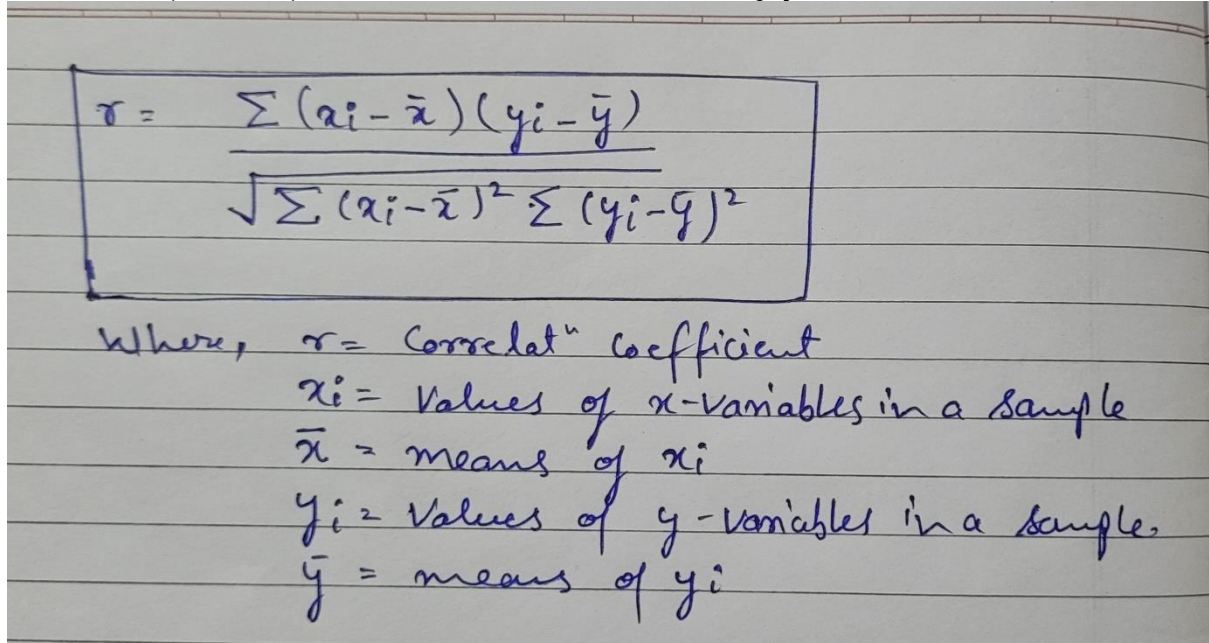 r = Σ (xi - x̄) (yi - ȳ)
√Σ (xi - x̄)² Σ (yi - ȳ)²
Where, r = Correlatⁿ Coefficient
xi = Values of x-variables in a sample
x̄ = means of xi
yi = Values of y-variables in a sample.
ȳ = means of yi